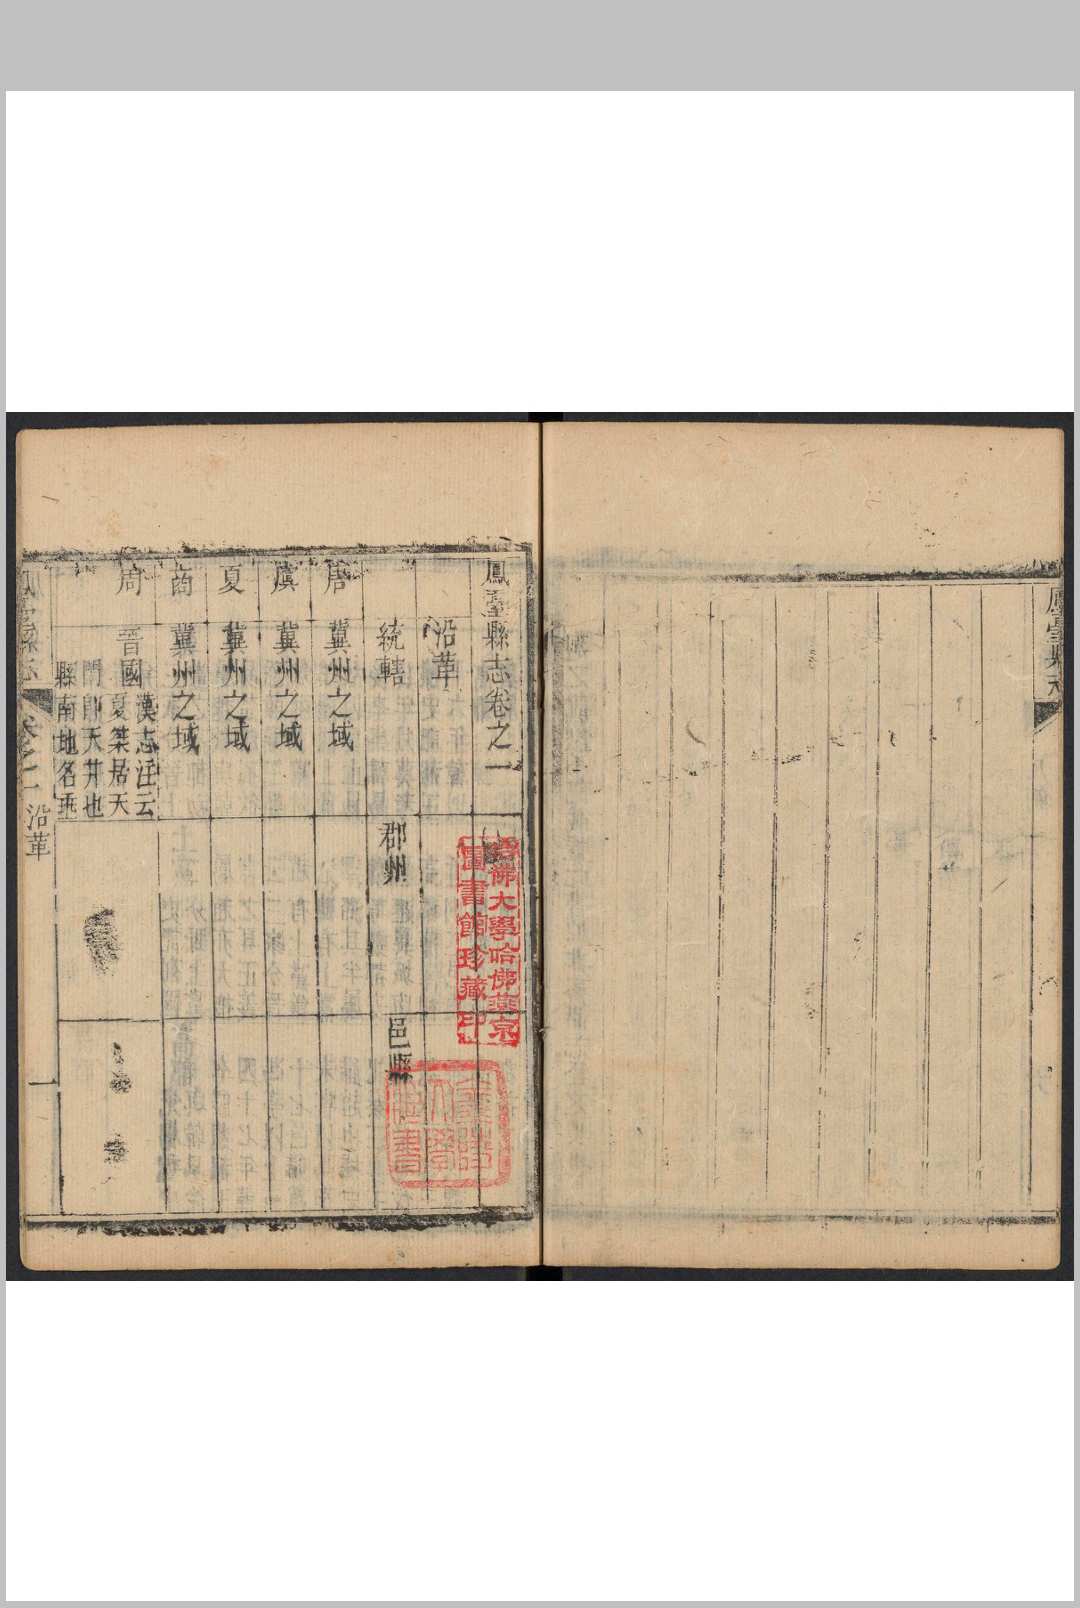 鳳臺縣志卷之一
沿革
統轄
郡州
邑縣
唐
冀州之域
虞
冀州之域
夏
冀州之域
商
冀州之域
周
晉國
漢志注云
夏桀居天
門即天井也
縣南地名
沿革
一
哈佛大學哈佛燕京
圖書館珍藏印